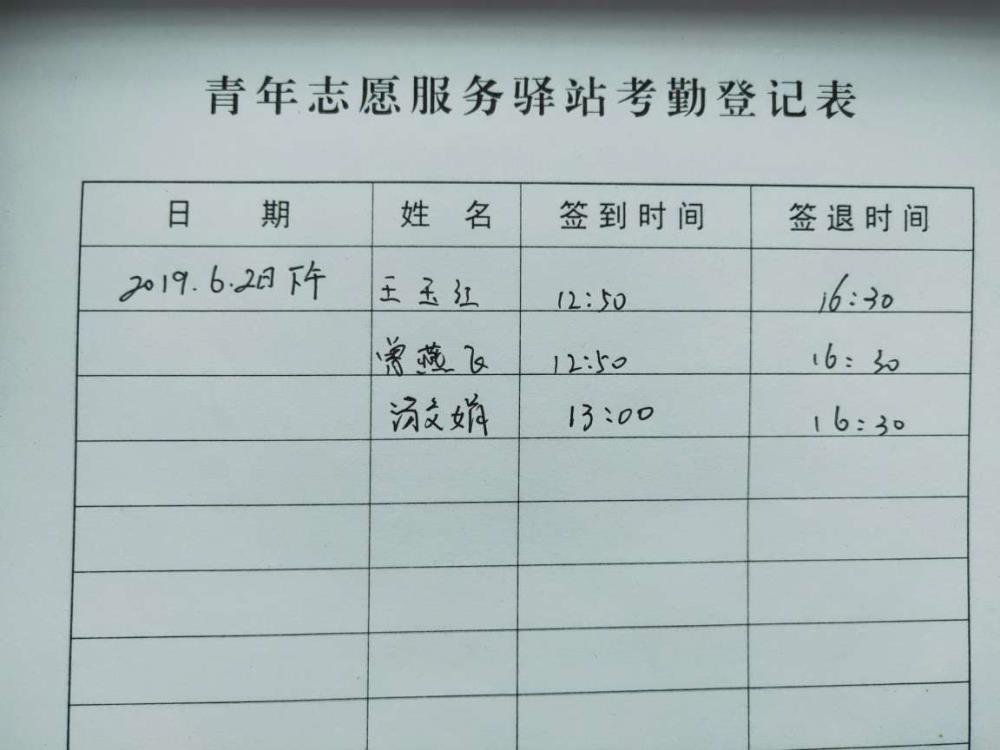 青年志愿服务驿站考勤登记表
日 期 姓 名 签到时间 签退时间
2019.6.2日下午 王玉红 12:50 16:30
曾燕飞 12:50 16:30
汤文娟 13:00 16:30